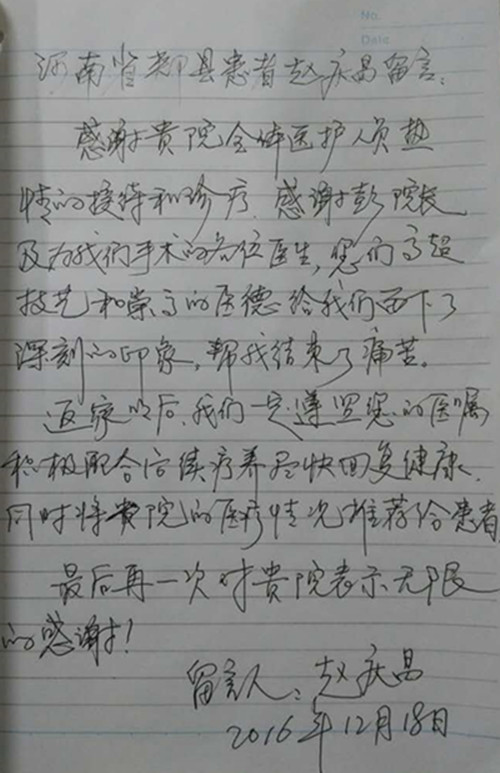 No.
Date
河南省郏县患者赵庆昌留言:
感谢贵院全体医护人员热
情的接待和诊疗.感谢彭院长
及为我们手术的各位医生,您们高超
技艺和崇高的医德给我们西下了
深刻的印象,帮我结束了痛苦。
返家以后,我们一定遵照您的医嘱
积极配合后续疗养尽快回复健康.
同时将贵院的医疗情况推荐给患者
最后再一次对贵院表示无限
的感谢!
留言人:赵庆昌
2016年12月18日